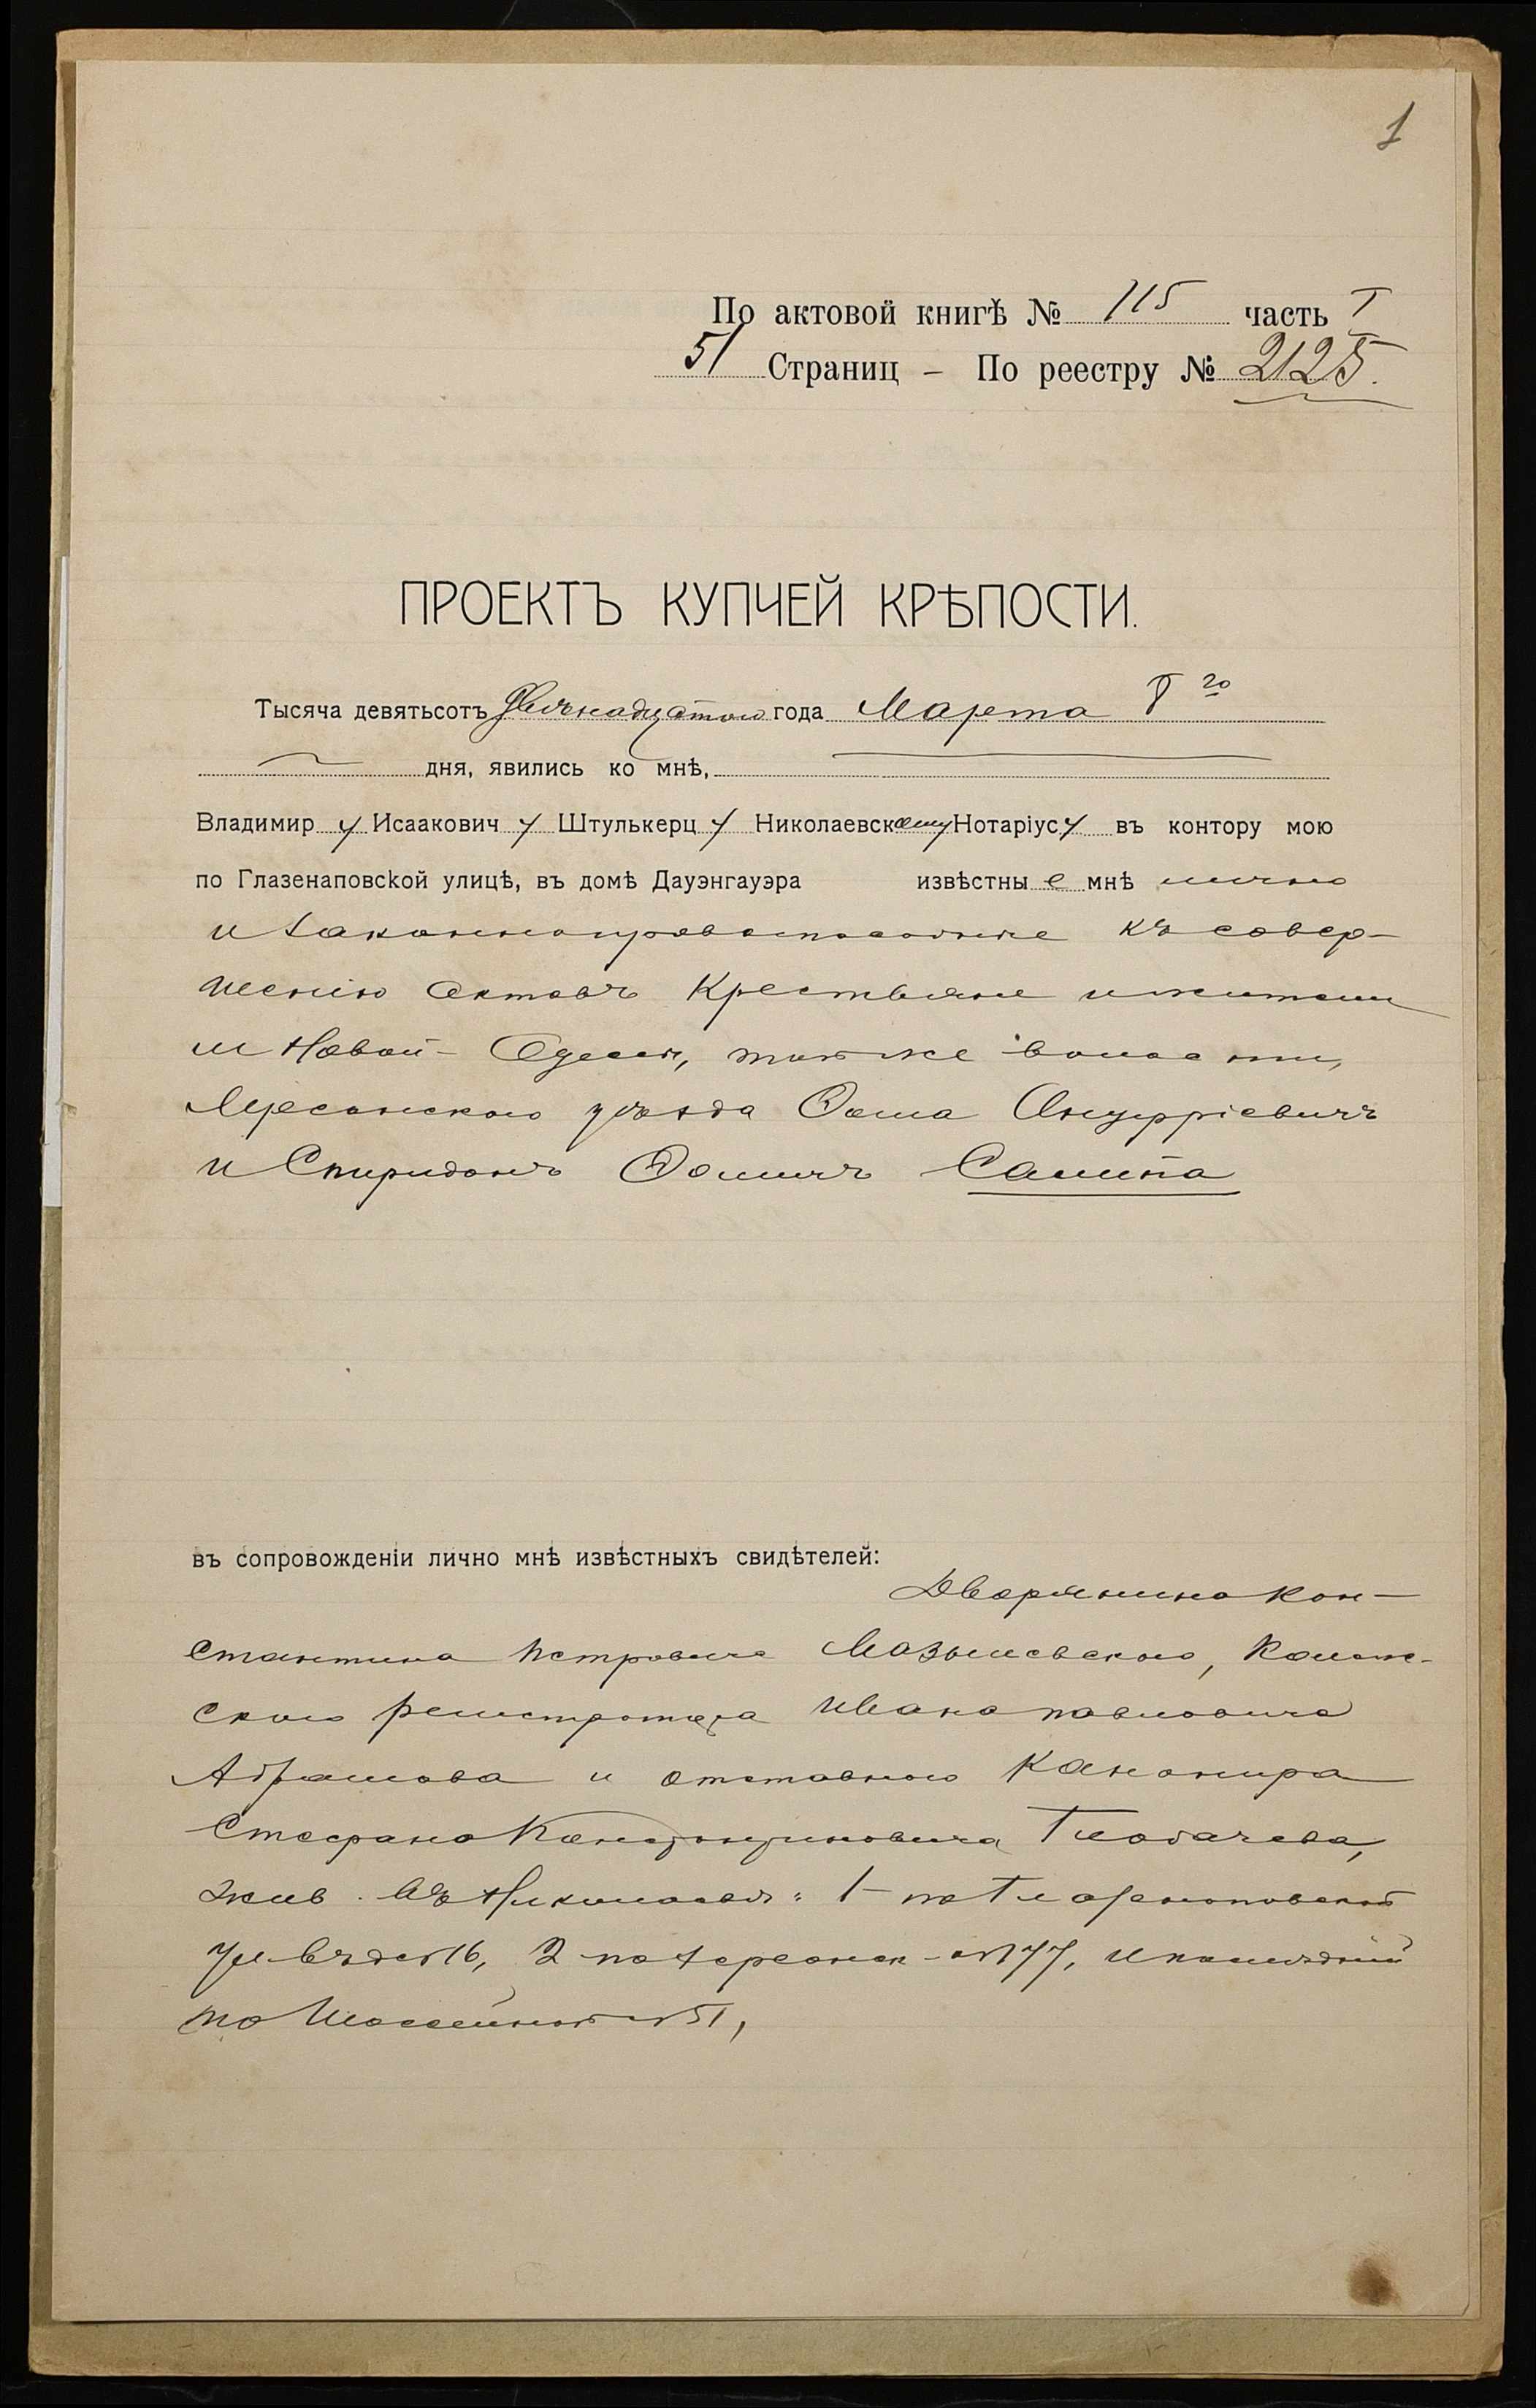 1
По актовой книгѣ № 115 часть I
51 Страниц – По реестру № 2125.
ПРОЕКТЪ КУПЧЕЙ КРѢПОСТИ.
Тысяча девятьсотъ двѣнадцатого года Марта
дня, явились ко мнѣ,
Владимир у Исаакович у Штулькерц у Николаевскому Нотаріусу въ контору мою
по Глазенаповской улицѣ, въ домѣ Дауэнгауэра извѣстны е мнѣ лично
и законноправоспособные къ совер-
шенію актовъ крестьяне и жители
м Новой-Одессы, той же волости,
Херсонскаго уѣзда Фома Онуфріевичъ
и Спиридонъ Фомичъ
въ сопровожденіи лично мнѣ извѣстныхъ свидѣтелей:
Дворянина Кон-
стантина Петровича Коллеж-
скаго регистратора Ивана Павловича
Абрамова и отставного канонира
Стефана
жив. въ Николаевѣ: 1– по Глазенаповской
ул въ д №16, 2 по Херсонск – №77, и послѣдній
по Шоссейной №51,